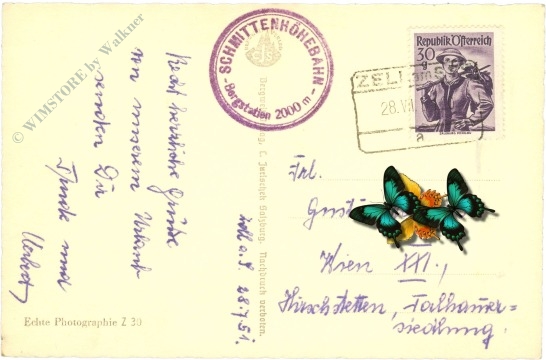 © WIMSTORE by Walkner
Recht herzliche Grüße
von unserem Urlaub
senden Dir
und
Herbert
Echte Photographie Z 30
SCHMITTENHÖHEBAHN
- Bergstation 2000 m -
C. Jurischek Salzburg. Nachdruck verboten.
Zell a. S. 28.7.51.
Republik Österreich
30
g
ZELL am
28. VII.
a
Frl.
Wien XXI.,
Hirschstetten,
siedlung.